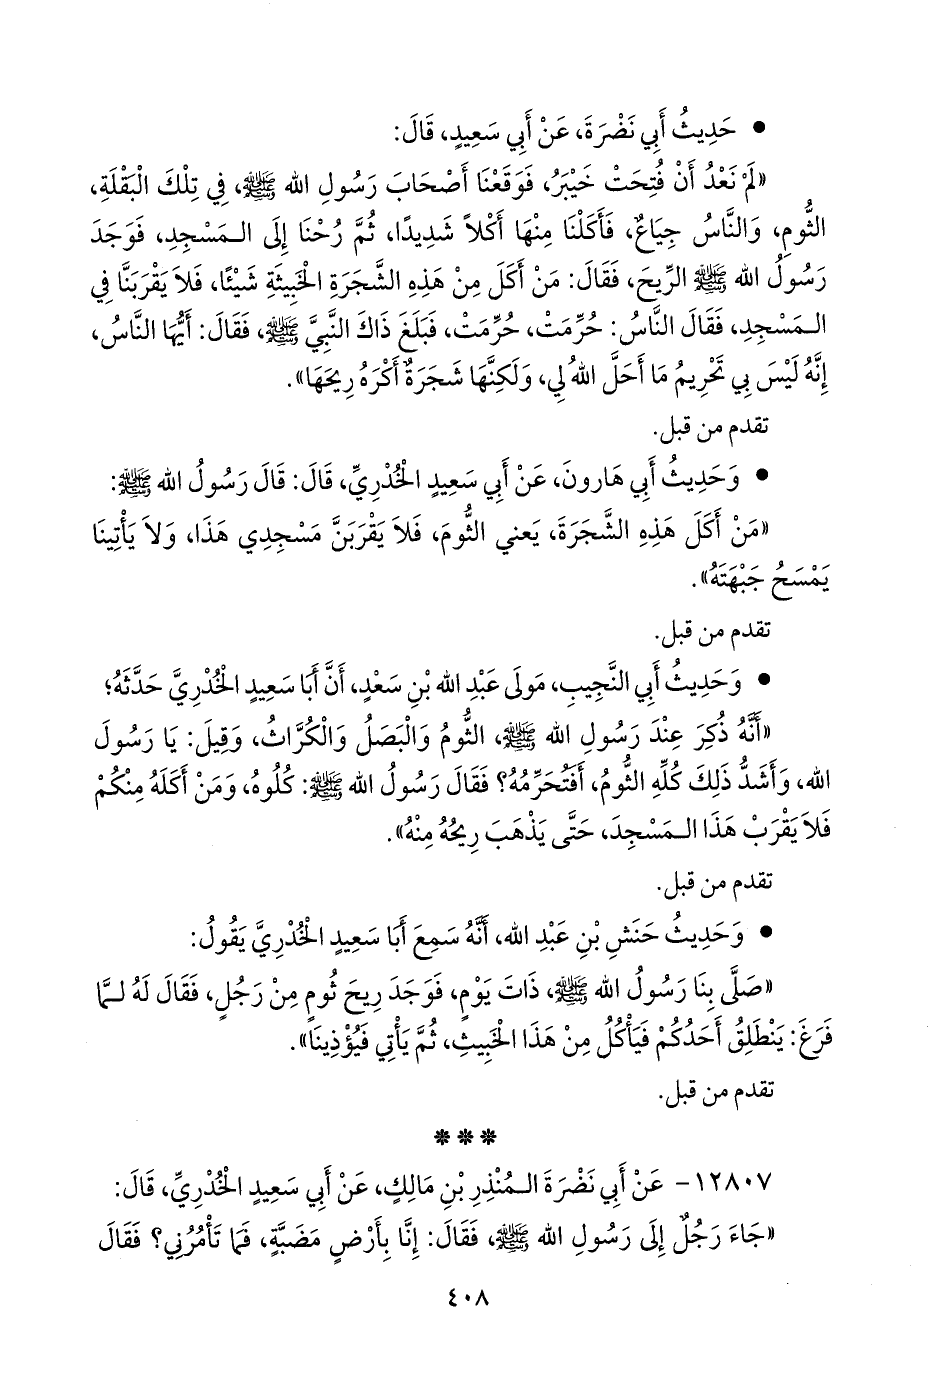 • حَدِيثُ أَبِي نَضْرَةَ، عَنْ أَبِي سَعِيدٍ، قَالَ:
«لَمْ نَعْدُ أَنْ فُتِحَتْ خَيْبَرُ، فَوَقَعْنَا أَصْحَابَ رَسُولِ الله ﷺ، فِي تِلْكَ الْبَقْلَةِ،
الثُّومِ، وَالنَّاسُ جِيَاعٌ، فَأَكَلْنَا مِنْهَا أَكْلاً شَدِيدًا، ثُمَّ رُحْنَا إِلَى الـمَسْجِدِ، فَوَجَدَ
رَسُولُ الله ﷺ الرِّيحَ، فَقَالَ: مَنْ أَكَلَ مِنْ هَذِهِ الشَّجَرَةِ الْخَبِيثَةِ شَيْئًا، فَلاَ يَقْرَبَنَّا فِي
الـمَسْجِدِ، فَقَالَ النَّاسُ: حُرِّمَتْ، حُرِّمَتْ، فَبَلَغَ ذَاكَ النَّبِيَّ ﷺ، فَقَالَ: أَيُّهَا النَّاسُ،
إِنَّهُ لَيْسَ بِي تَحْرِيمُ مَا أَحَلَّ اللهُ لِي، وَلَكِنَّهَا شَجَرَةٌ أَكْرَهُ رِيحَهَا».
تقدم من قبل.
• وَحَدِيثُ أَبِي هَارونَ، عَنْ أَبِي سَعِيدٍ الْخُدْرِيِّ، قَالَ: قَالَ رَسُولُ الله ﷺ:
«مَنْ أَكَلَ هَذِهِ الشَّجَرَةَ، يَعني الثُّومَ، فَلاَ يَقْرَبَنَّ مَسْجِدِي هَذَا، وَلاَ يَأْتِينَا
يَمْسَحُ جَبْهَتَهُ».
تقدم من قبل.
• وَحَدِيثُ أَبِي النَّجِيبِ، مَولَى عَبْدِ الله بْنِ سَعْدٍ، أَنَّ أَبَا سَعِيدٍ الْخُدْرِيَّ حَدَّثَهُ؛
«أَنَّهُ ذُكِرَ عِنْدَ رَسُولِ الله ﷺ، الثُّومُ وَالْبَصَلُ وَالْكُرَّاثُ، وَقِيلَ: يَا رَسُولَ
الله، وَأَشَدُّ ذَلِكَ كُلِّهِ الثُّومُ، أَفَتُحَرِّمُهُ؟ فَقَالَ رَسُولُ الله ﷺ: كُلُوهُ، وَمَنْ أَكَلَهُ مِنْكُمْ
فَلاَ يَقْرَبْ هَذَا الـمَسْجِدَ، حَتَّى يَذْهَبَ رِيحُهُ مِنْهُ».
تقدم من قبل.
• وَحَدِيثُ حَنَشِ بْنِ عَبْدِ الله، أَنَّهُ سَمِعَ أَبَا سَعِيدٍ الْخُدْرِيَّ يَقُولُ:
«صَلَّى بِنَا رَسُولُ الله ﷺ، ذَاتَ يَوْمٍ، فَوَجَدَ رِيحَ ثُومٍ مِنْ رَجُلٍ، فَقَالَ لَهُ لـمَّا
فَرَغَ: يَنْطَلِقُ أَحَدُكُمْ فَيَأْكُلُ مِنْ هَذَا الْخَبِيثِ، ثُمَّ يَأْتِي فَيُؤْذِينَا».
تقدم من قبل.
***
١٢٨٠٧- عَنْ أَبِي نَضْرَةَ الـمُنْذِرِ بْنِ مَالِكٍ، عَنْ أَبِي سَعِيدٍ الْخُدْرِيِّ، قَالَ:
«جَاءَ رَجُلٌ إِلَى رَسُولِ الله ﷺ، فَقَالَ: إِنَّا بِأَرْضٍ مَضَبَّةٍ، فَمَا تَأْمُرُنِي؟ فَقَالَ
٤٠٨